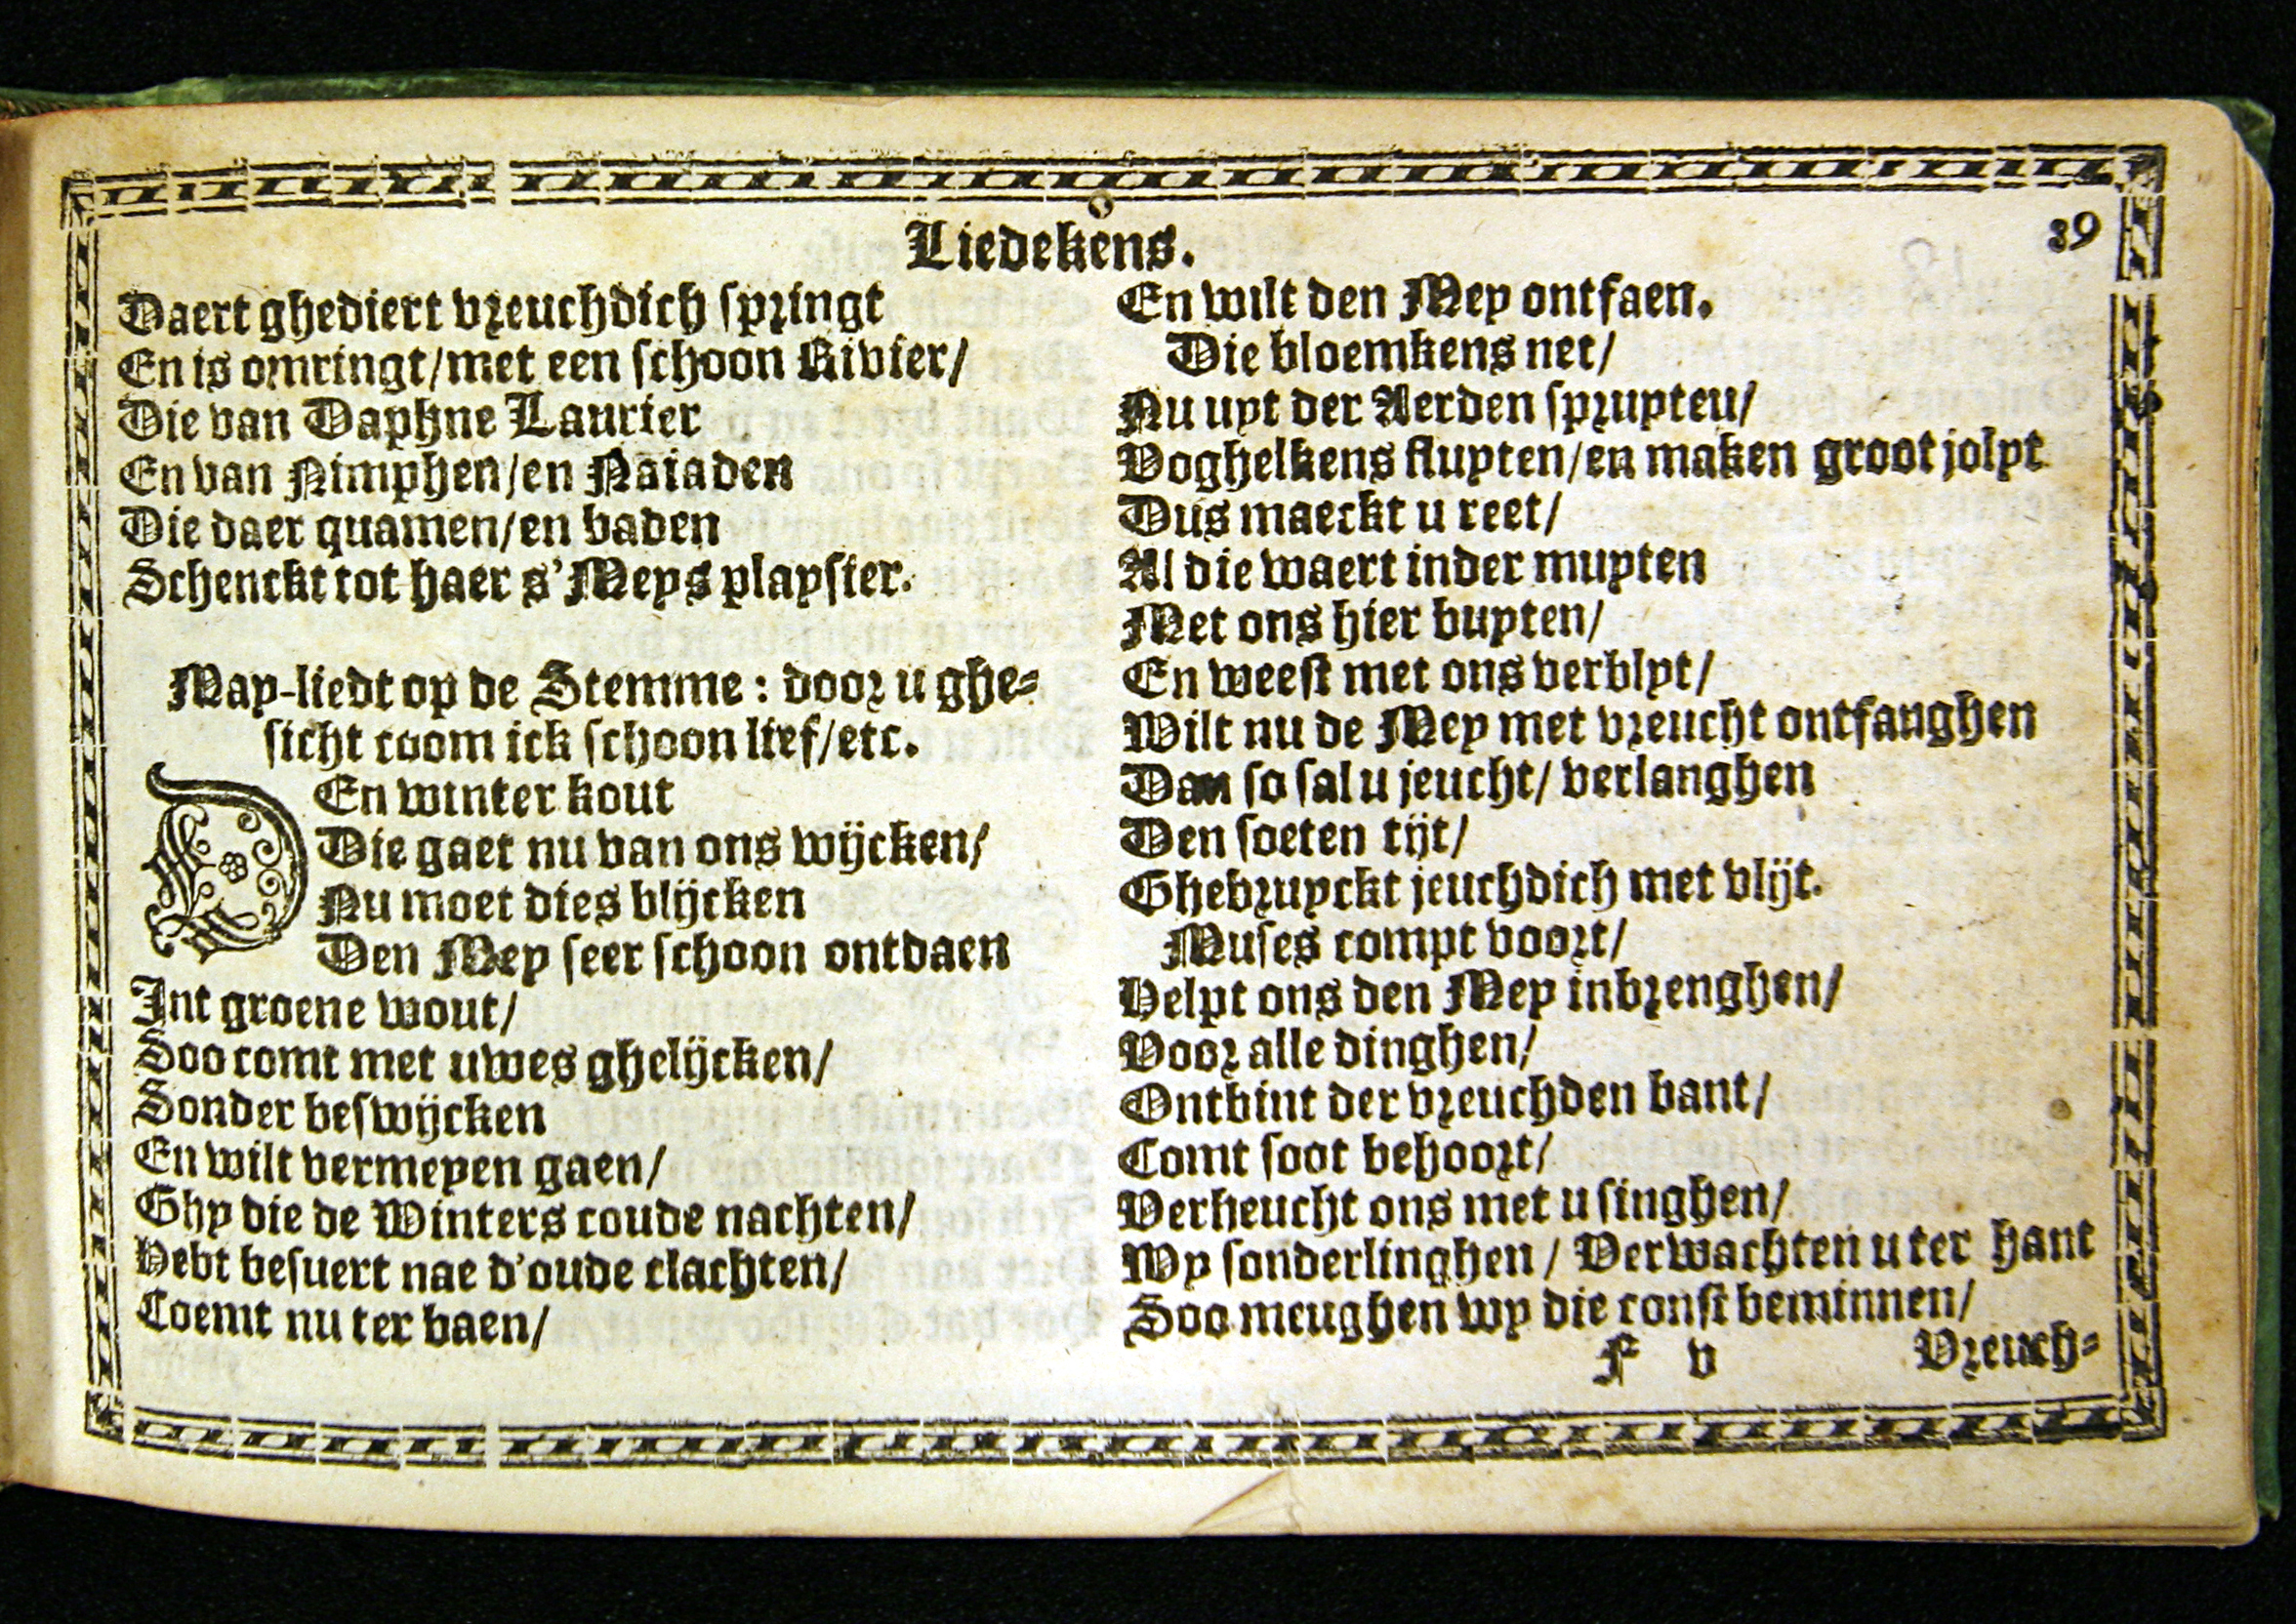 Liedekens.
39
Daert ghediert vreuchdich springt
En is omringt/met een schoon Rivier/
Die van Daphne Laurier
En van Nimphen/en Naiaden
Die daer quamen/en baden
Schenckt tot haer s'Meys playsier.
May-liedt op de Stemme: door u ghe-
sicht coom ick schoon lief/etc.
DEn winter kout
Die gaet nu van ons wijcken/
Nu moet dies blijcken
Den Mey seer schoon ontdaen
Int groene wout/
Soo comt met uwes ghelijcken/
Sonder beswijcken
En wilt vermeyen gaen/
Ghy die de Winters coude nachten/
Hebt besuert nae d'oude clachten/
Coemt nu ter baen/
En wilt den Mey ontfaen.
Die bloemkens net/
Nu uyt der Aerden spruyteu/
Voghelkens fluyten/en maken groot jolyt
Dus maeckt u reet/
Al die waert inder muyten
Met ons hier buyten/
En weest met ons verblyt/
Wilt nu de Mey met vreucht ontfanghen
Dan so sal u jeucht/ verlanghen
Den soeten tijt/
Ghebruyckt jeuchdich met vlijt.
Muses compt voort/
Helpt ons den Mey inbrenghen/
Voor alle dinghen/
Ontbint der vreuchden bant/
Comt soot behoort/
Verheucht ons met u singhen/
Wy sonderlinghen / Verwachten u ter hant
Soo meughen wy die const beminnen/
F v
Vreuch-